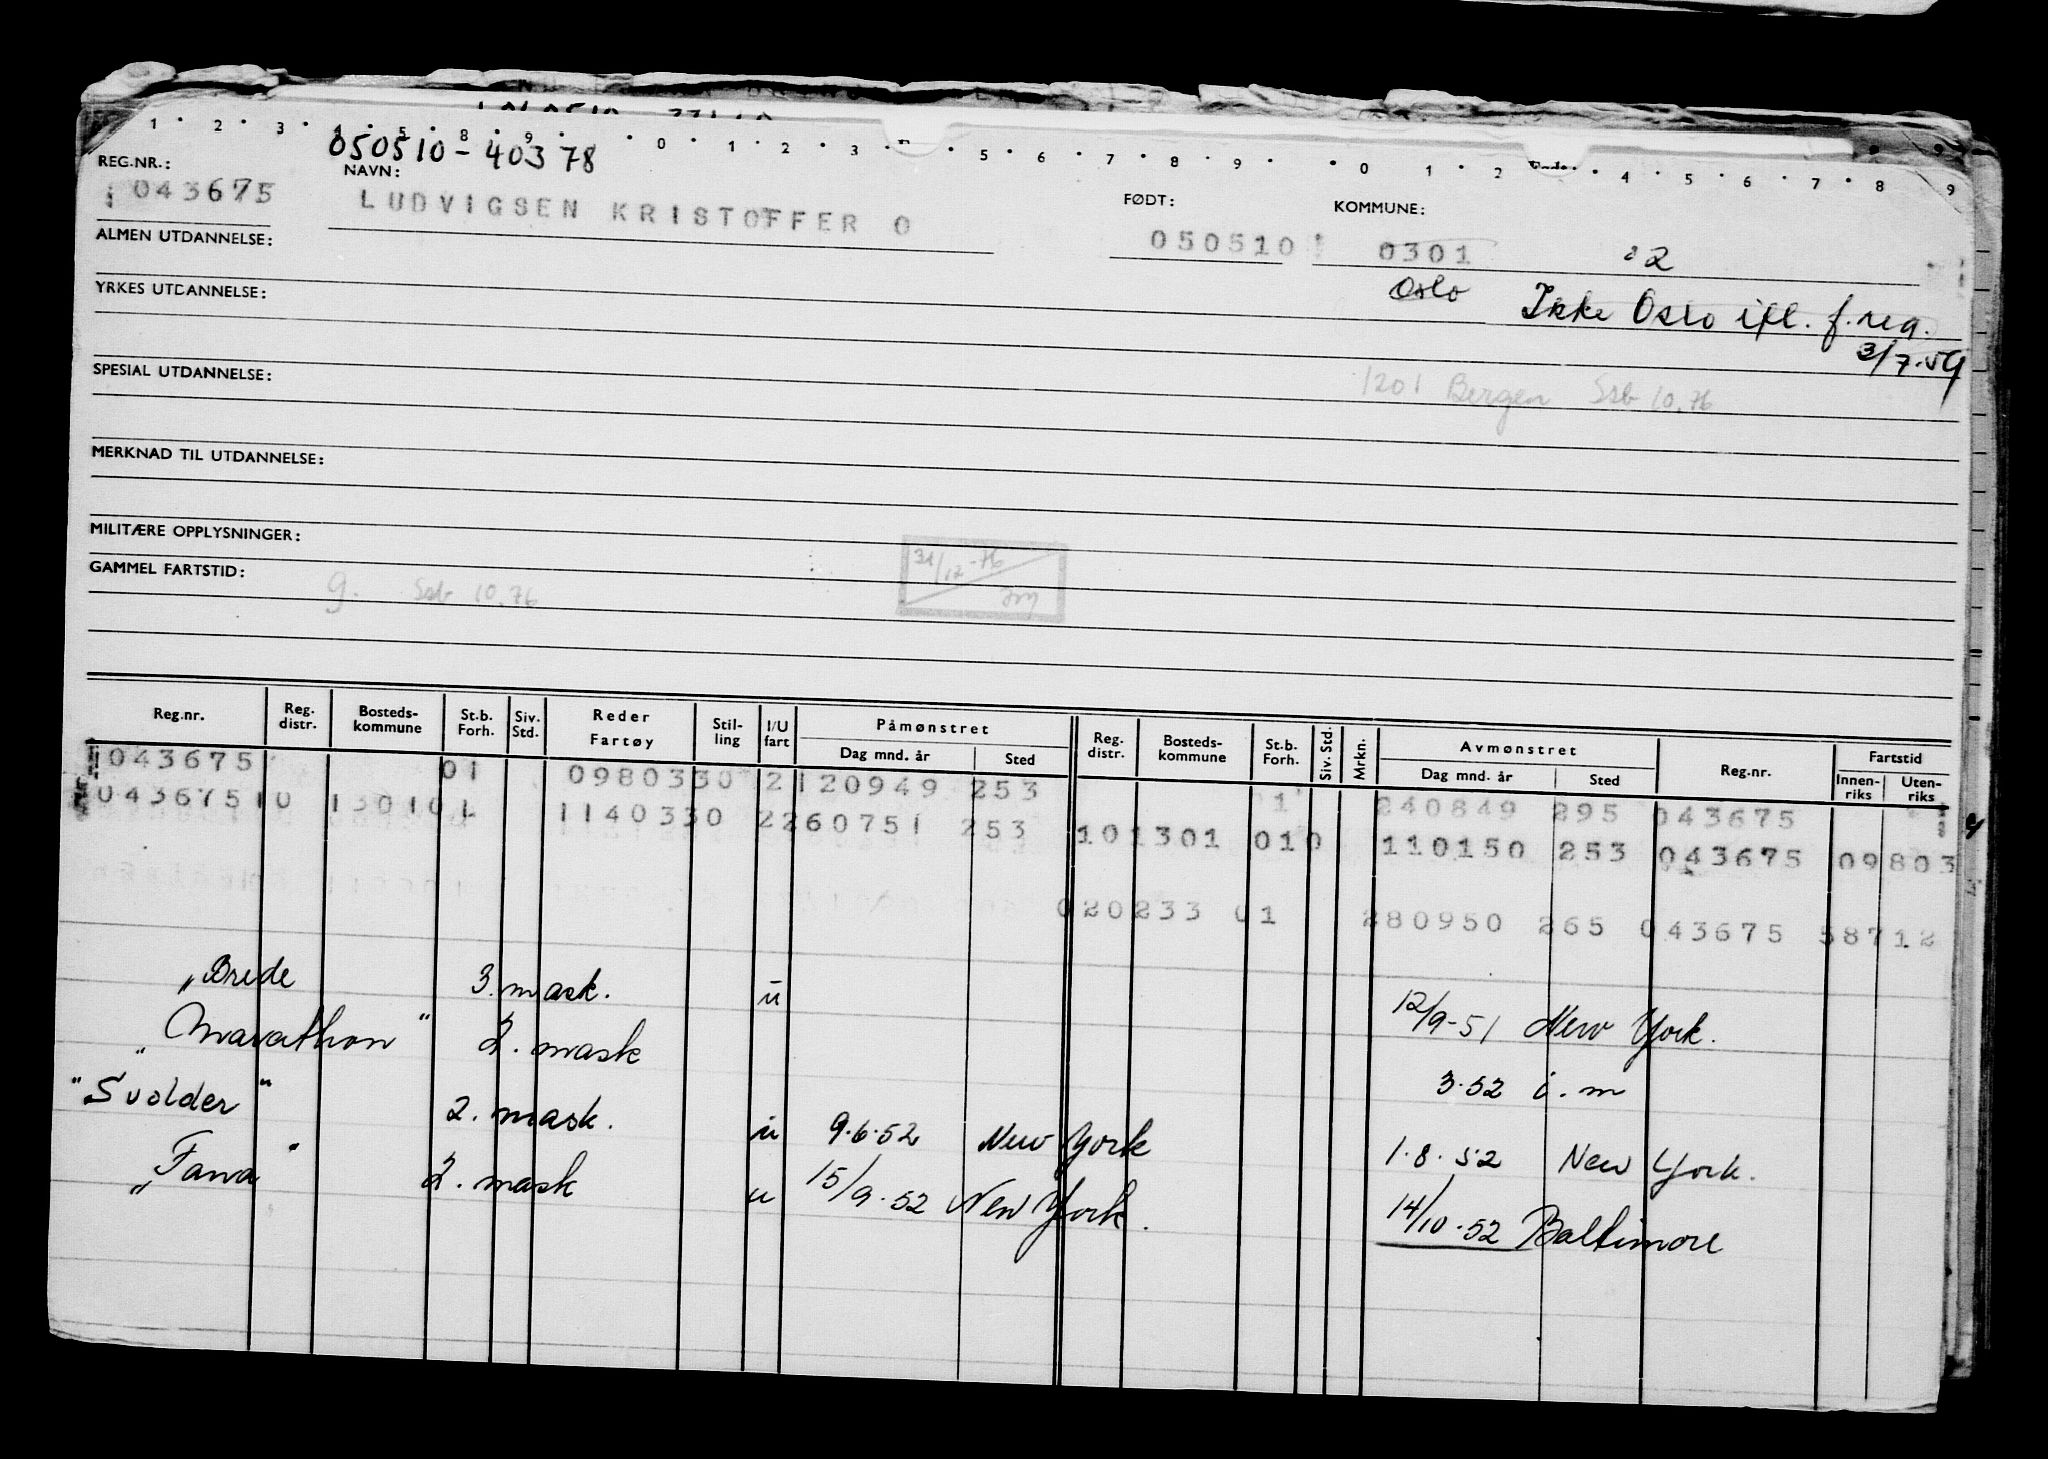 1 · 2 · 3 · 4 · 5 · 8 · 9 · 0 · 1 · 2 · 3 · 5 · 6 · 7 · 8 · 9 · 0 · 1 · 2 · 4 · 5 · 6 · 7 · 8 · 9
050510-40378
REG.NR.: NAVN: FØDT: KOMMUNE:
043675 LUDVIGSEN KRISTOFFER O 050510 0301 2
ALMEN UTDANNELSE:
Oslo Ikke Oslo ifl. f.reg.
3/7.59
YRKES UTDANNELSE:
SPESIAL UTDANNELSE:
1201 Bergen Ssb 10.76
MERKNAD TIL UTDANNELSE:
MILITÆRE OPPLYSNINGER:
31/12-76
GAMMEL FARTSTID: g. Ssb 10.76
Reg.nr. Reg. distr. Bosteds-kommune St.b. Forh. Siv. Std. Reder Fartøy Stil-ling I/U fart Påmønstret Dag mnd. år Sted Reg. distr. Bosteds-kommune St.b. Forh. Siv. Std. Mrkn. Avmønstret Dag mnd. år Sted Reg.nr. Fartstid Innen-riks Uten-riks
043675 01 0980330 2 120949 253 1 240849 295 043675
04367510 130101 1140330 2260751 253 101301 010 110150 253 043675 09803
020233 01 280950 265 043675 58712
„Brede 3. mask. u 12/9-51 New York.
„Marathon" 2. mask 3.52 i.m
"Svolder" 2. mask. u 9.6.52 New York 1.8.52 New York.
„Fana" 2. mask u 15/9.52 New York. 14/10.52 Baltimore